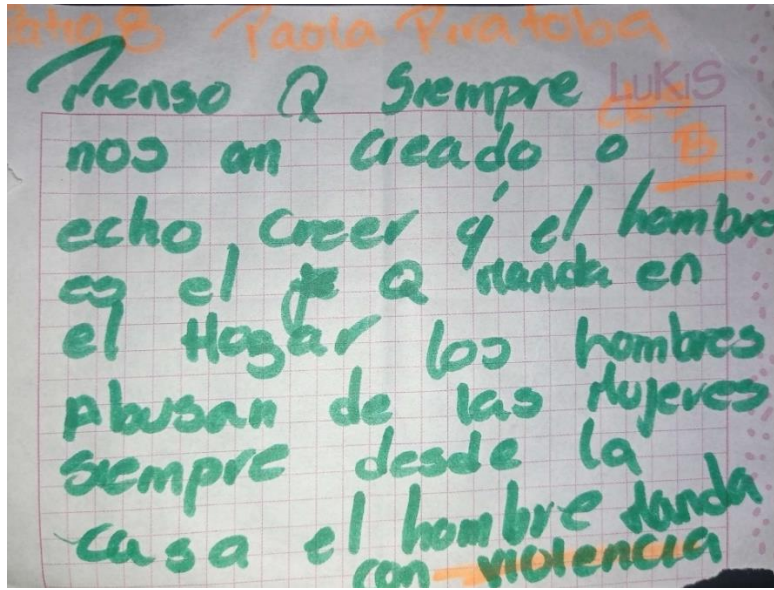 Patio 8 Paola Piratoba
Pienso Q Siempre LuKiS
nos an creado o 8
echo creer q' el hombre
es el Q Manda en
el Hogar los hombres
Abusan de las Mujeres
siempre desde la
casa el hombre Manda
con violencia